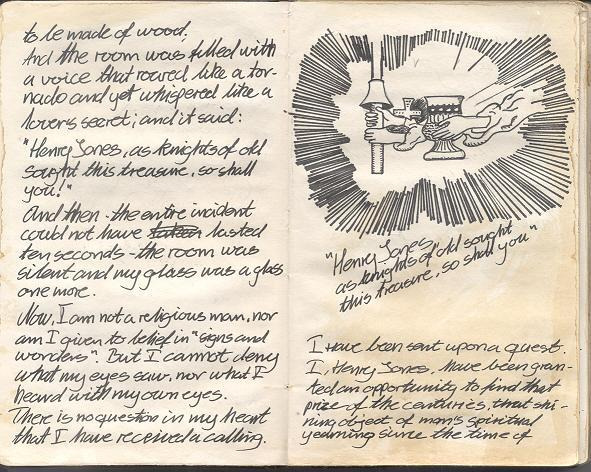 to be made of wood.
And the room was filled with
a voice that roared like a tor-
nado and yet whispered like a
lovers secret; and it said:
"Henry Jones, as knights of old
sought this treasure, so shall
you!"
And then - the entire incident
could not have lasted
ten seconds - the room was
silent and my glass was a glass
one more.
Now, I am not a religious man, nor
am I given to belief in "signs and
wonders". But I cannot deny
what my eyes saw, nor what I
heard with my own eyes.
There is no question in my heart
that I have received a calling.
"Henry Jones,
as knights of old sought
this treasure, so shall you"
I have been sent upon a quest.
I, Henry Jones, have been gran-
ted an opportunity to find that
prize of the centuries, that shi-
ning object of man's spiritual
yearning since the time of